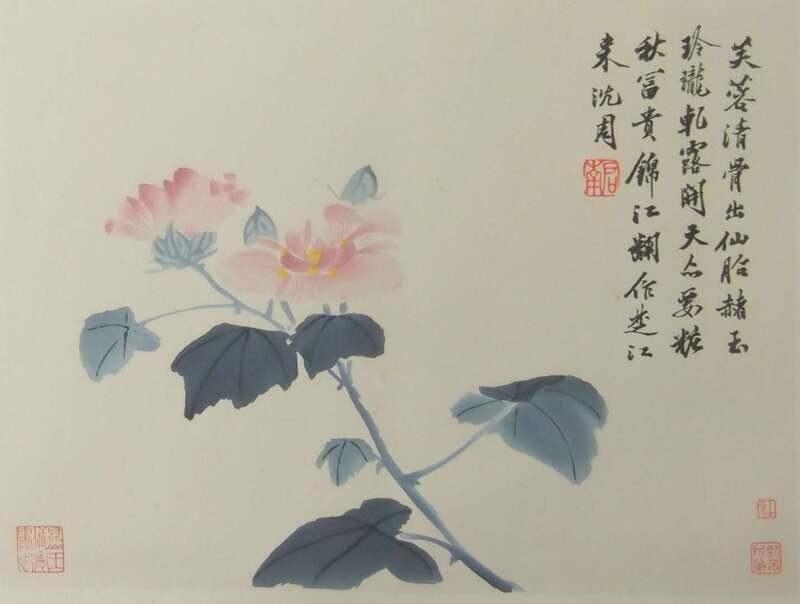 芙蓉清骨出仙胎赭玉
玲瓏軋露開天亦要粧
秋冨貴錦江翻作楚江
来沈周
啟南